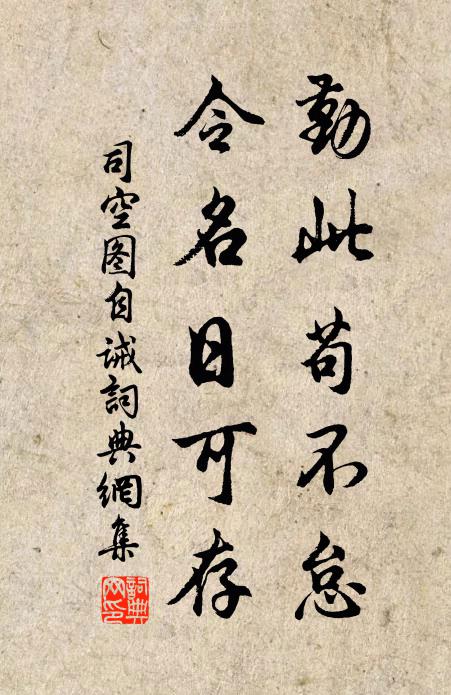 勤此苟不怠
令名日可存
司空图自诫詞典網集
詞典網印